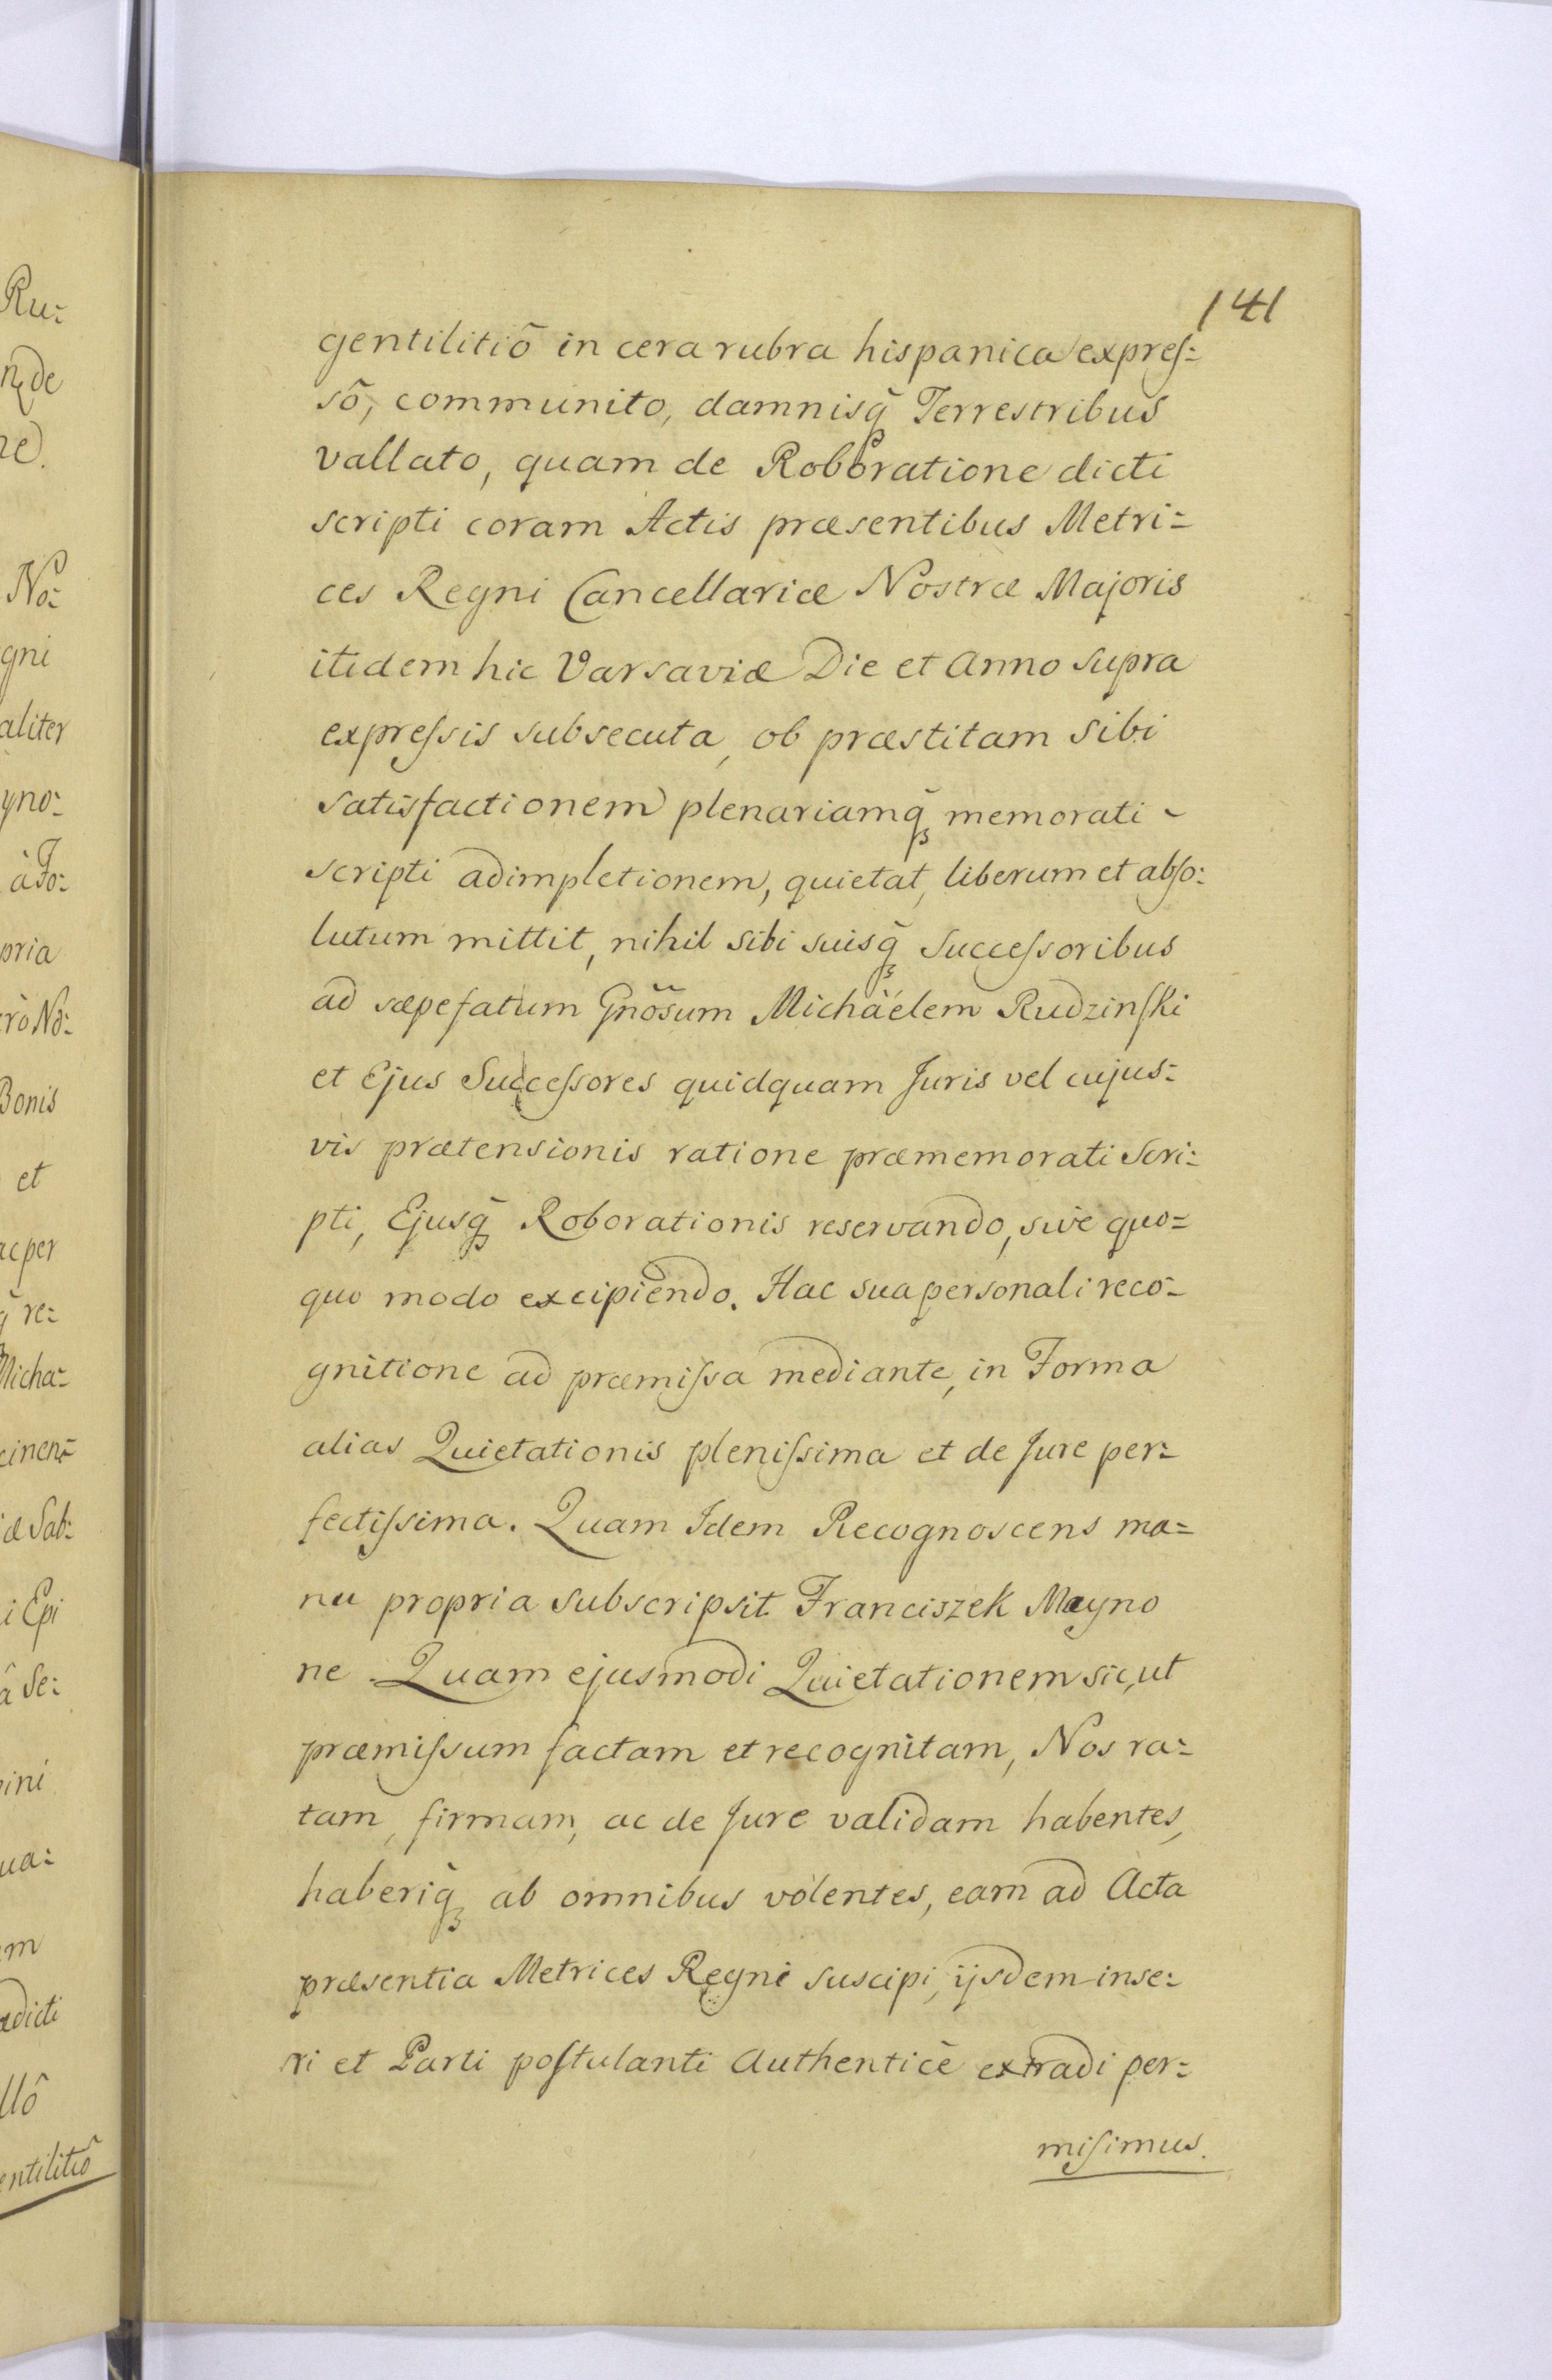 141
gentilitiõ in cera rubra hispanica expreſ=
sõ, communito, damnisq̃ Terrestribus
vallato, quam de Roboratione dicti
scripti coram Actis præsentibus Metri=
ces Regni Cancellariæ Nostræ Majoris
itidem hic Varsaviæ Die et Anno supra
expreſsis subsecuta, ob præstitam sibi
satisfactionem plenariamq̃ memorati -
scripti adimpletionem, quietat, liberum et abſo=
lutum mittit, nihil sibi suisq̃ Succeſsoribus
ad sæpefatum Gnõsum Michäelem Rudzinſki
et Ejus Succeſsores quidquam Juris vel cujus=
vis prætensionis ratione præmemorati Scri=
pti, Ejusq̃ Roborationis reservando, sive quo=
quo modo excipiendo. Hac sua personali reco=
gnitione ad præmiſsa mediante, in Forma
alias Quietationis pleniſsima et de Jure per=
fectiſsima. Quam Idem Recognoscens ma=
nu propria subscripsit Franciszek Mayno
ne. Quam ejusmodi Quietationem sic, ut
præmiſsum factam et recognitam, Nos ra=
tam, firmam, ac de Jure validam habentes,
haberiq̃ ab omnibus volentes, eam ad Acta
præsentia Metrices Regni suscipi, ijsdem inse=
ri et Parti poſtulanti Authenticè extradi per=
miſimus.
Ru=
de
No=
gni
aliter
yno=
à Jo=
pria
rò No=
Bonis
et
ac per
re=
Micha=
cinen=
æ Sab=
i Epi
â Se=
ini
ua=
em
adicti
llô
entilitiô